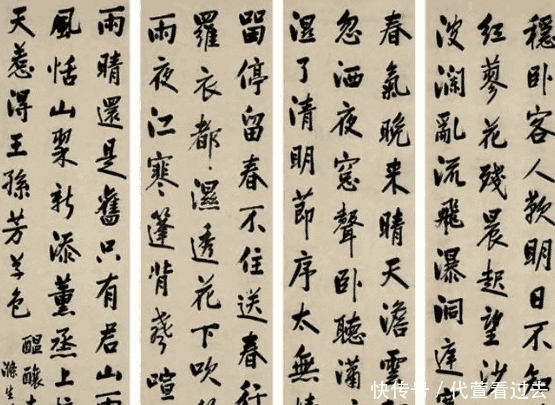 穩卧客人歎明日不知
紅蓼花殘晨起望沙
波瀾亂流飛瀑洞庭
春氣晚來晴天澹雲
忽洒夜窓聲卧聽瀟
濕了清明節序太無情
留停留春不住送春行
羅衣都濕透花下吹
雨夜江寒篷背聲喧
雨晴還是舊只有君山
風恬山翠新添薰蒸上
天惹得王孫芳草色
醞釀
滌生
快传号／代萱看过去